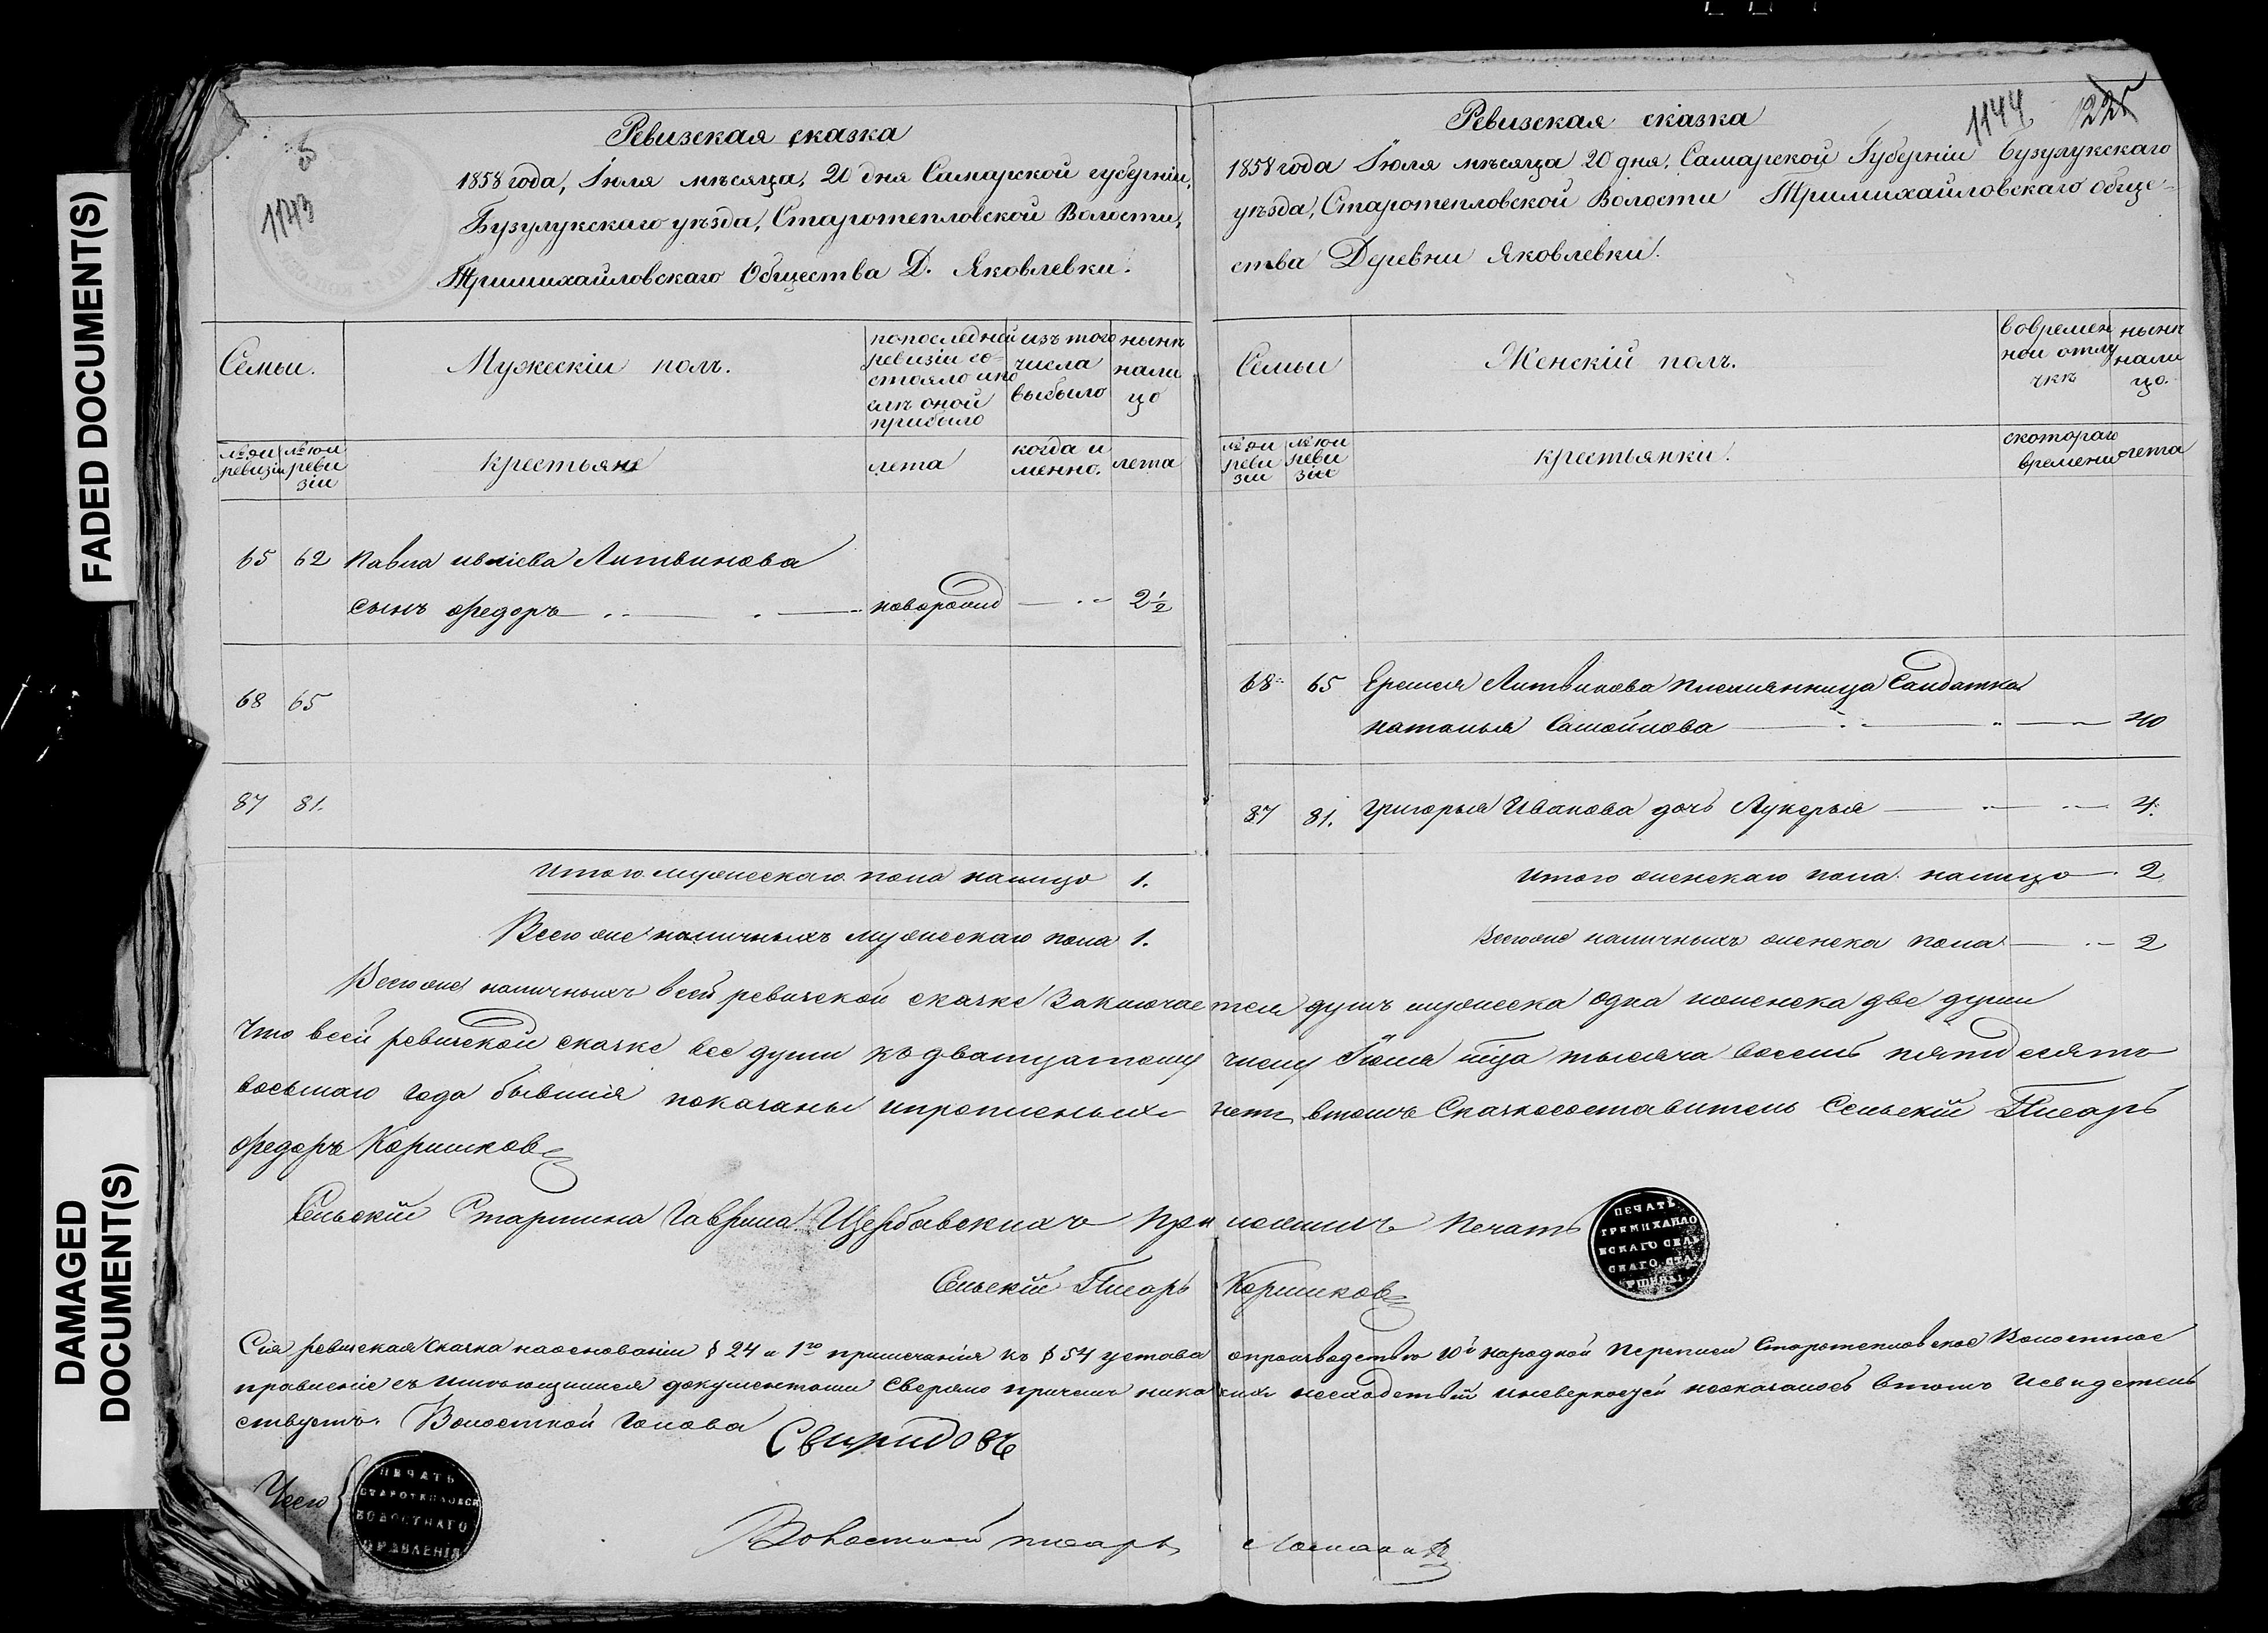 FADED DOCUMENT(S)
DAMAGED DOCUMENT(S)
1143
Ревизская сказка
1858 года, Іюля мѣсяца, 20 дня Самарской губерніи,
Бузулукскаго уѣзда, Старотепловской Волости,
Тримихайловскаго Общества Д. Яковлевки.
Семьи.
Мужескій полъ.
по последней ревизіи состояло и после оной прибыло
изъ того числа выбыло
нынѣ на лицо
№ 9й ревизіи
№ 10й ревизіи
крестьяне
лета
когда именно.
лета
65 62 Павла Литвинова
сынъ Федоръ новорожд 2½
68 65
87 81.
Итого мужескаго пола налицо 1.
Всего же наличныхъ мужескаго пола 1.
1144
Ревизская сказка
1858 года Іюля мѣсяца 20 дня, Самарской Губерніи Бузулукскаго
уѣзда, Старотепловской Волости Тримихайловскаго обще-
ства Деревни Яковлевки.
Семьи
Женскій полъ.
во временной отлучкѣ
нынѣ на лицо.
№ 9й ревизіи
№ 10й ревизіи
крестьянки.
с котораго времени
лета
68 65 Еремея Литвинова племянница Салдатка
наталья Самойлова 40
87 81. Григорья Иванова дочь Лукерья 4.
Итого женскаго пола налицо 2
Всего же наличныхъ женска пола 2
Всего же наличныхъ всей ревизской сказке Заключается душъ мужеска одна иженска две души
Что всей ревизской сказке все души къ дватцатому числу Іюля мца тысяча восемь пятдесятъ
восьмаго года бывшія показаны ипрописныхъ нетъ втомъ Сказкосоставитель Сельскій Писарь
Федоръ Коршиковъ
Сельскій Старшина Гаврила Щербавскихъ приложилъ Печать
ПЕЧАТЬ
ТРЕМИХАЙЛО
ВСКАГО СЕЛЬ
СКАГО СТАР
ШИНЫ
Сельскій Писарь Коршиковъ
Сія ревизская Сказка наоснованіи § 24 и 1го примечанія къ § 54 устава опроизводстве 10й народной переписи Старотепловское Волостное
правленіе съ имеющимися документами сверяло причемъ никакихъ несходствій иневерностей неоказалось втомъ исвидетель
ствуетъ. Волостной Голова Свиридовъ
ПЕЧАТЬ
СТАРОТЕПЛОВСК
ВОЛОСТНАГО
ПРАВЛЕНІЯ
Волостной писарь